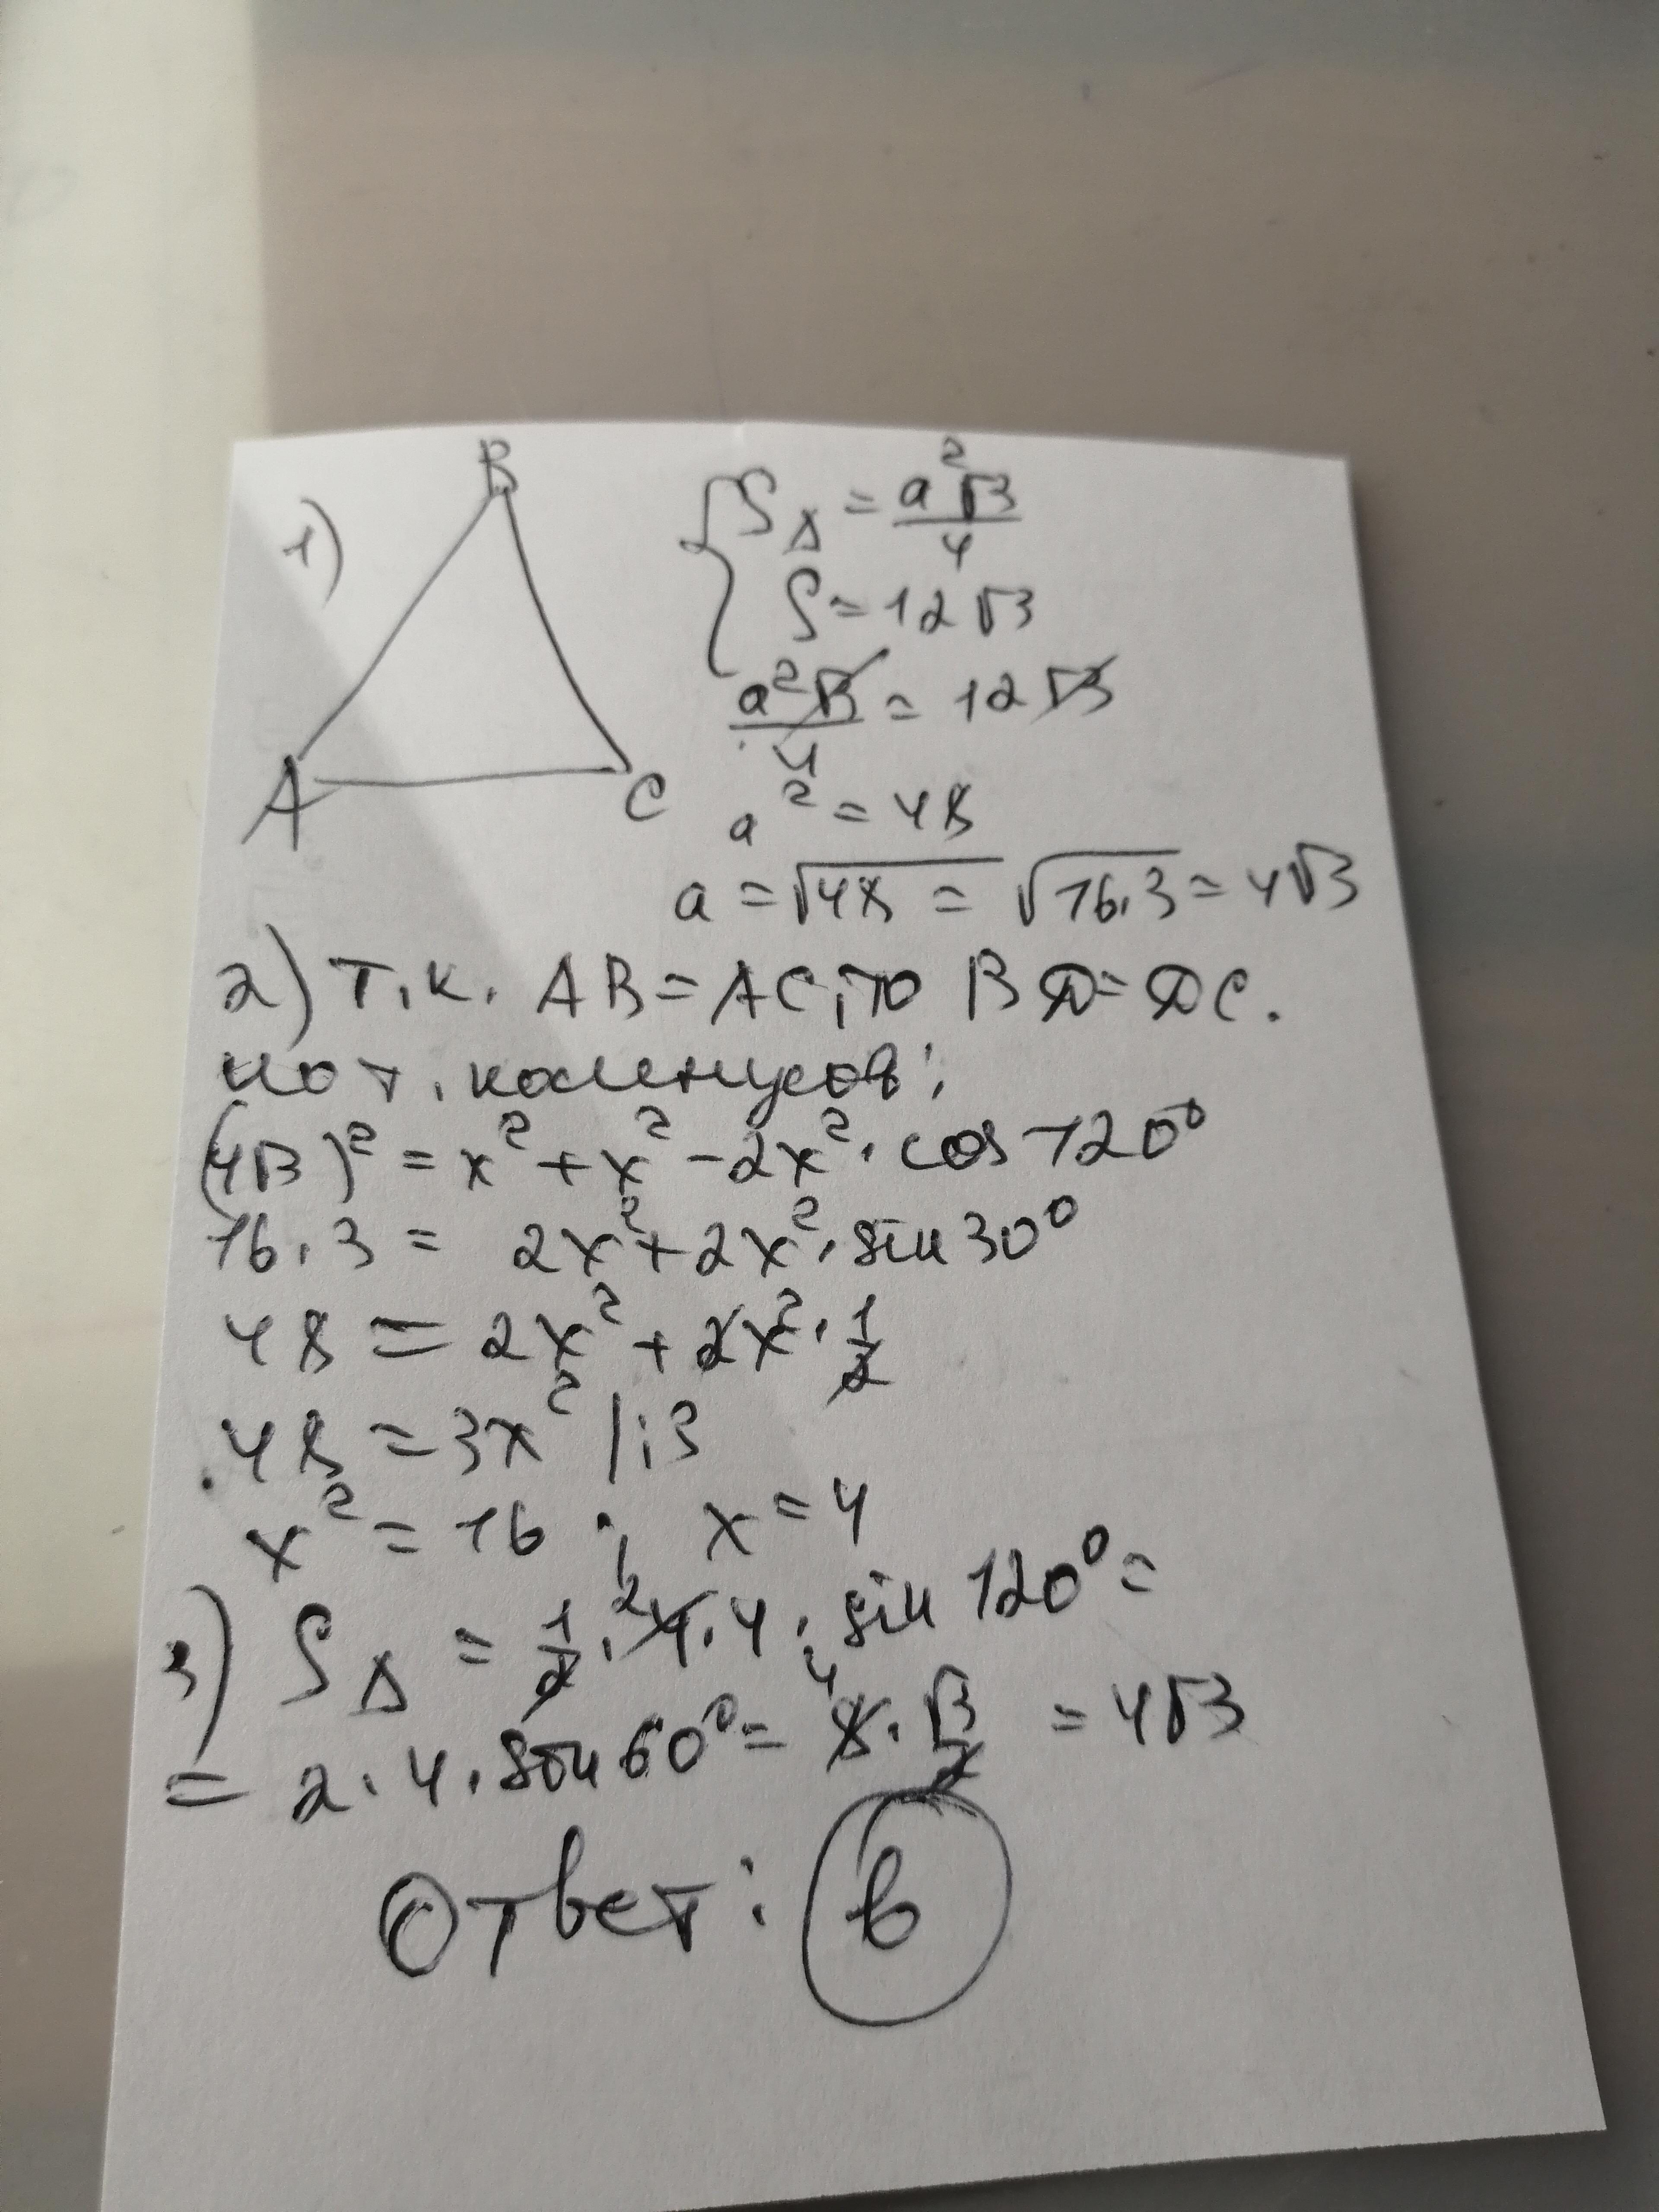 1)
B
A
C
S△ = a²√3/4
S = 12√3
a²√3/4 = 12√3
a² = 48
a = √48 = √16.3 = 4√3
2) т.к. AB = AC, то BD = DC.
по т. косинусов:
(4√3)² = x² + x² - 2x² · cos 120°
16.3 = 2x² + 2x² · sin 30°
48 = 2x² + 2x² · 1/2
48 = 3x² | :3
x² = 16 ; x = 4
3) S△ = 1/2 · 4 · 4 · sin 120° =
= 2 · 4 · sin 60° = 8 · √3/2 = 4√3
Ответ: в